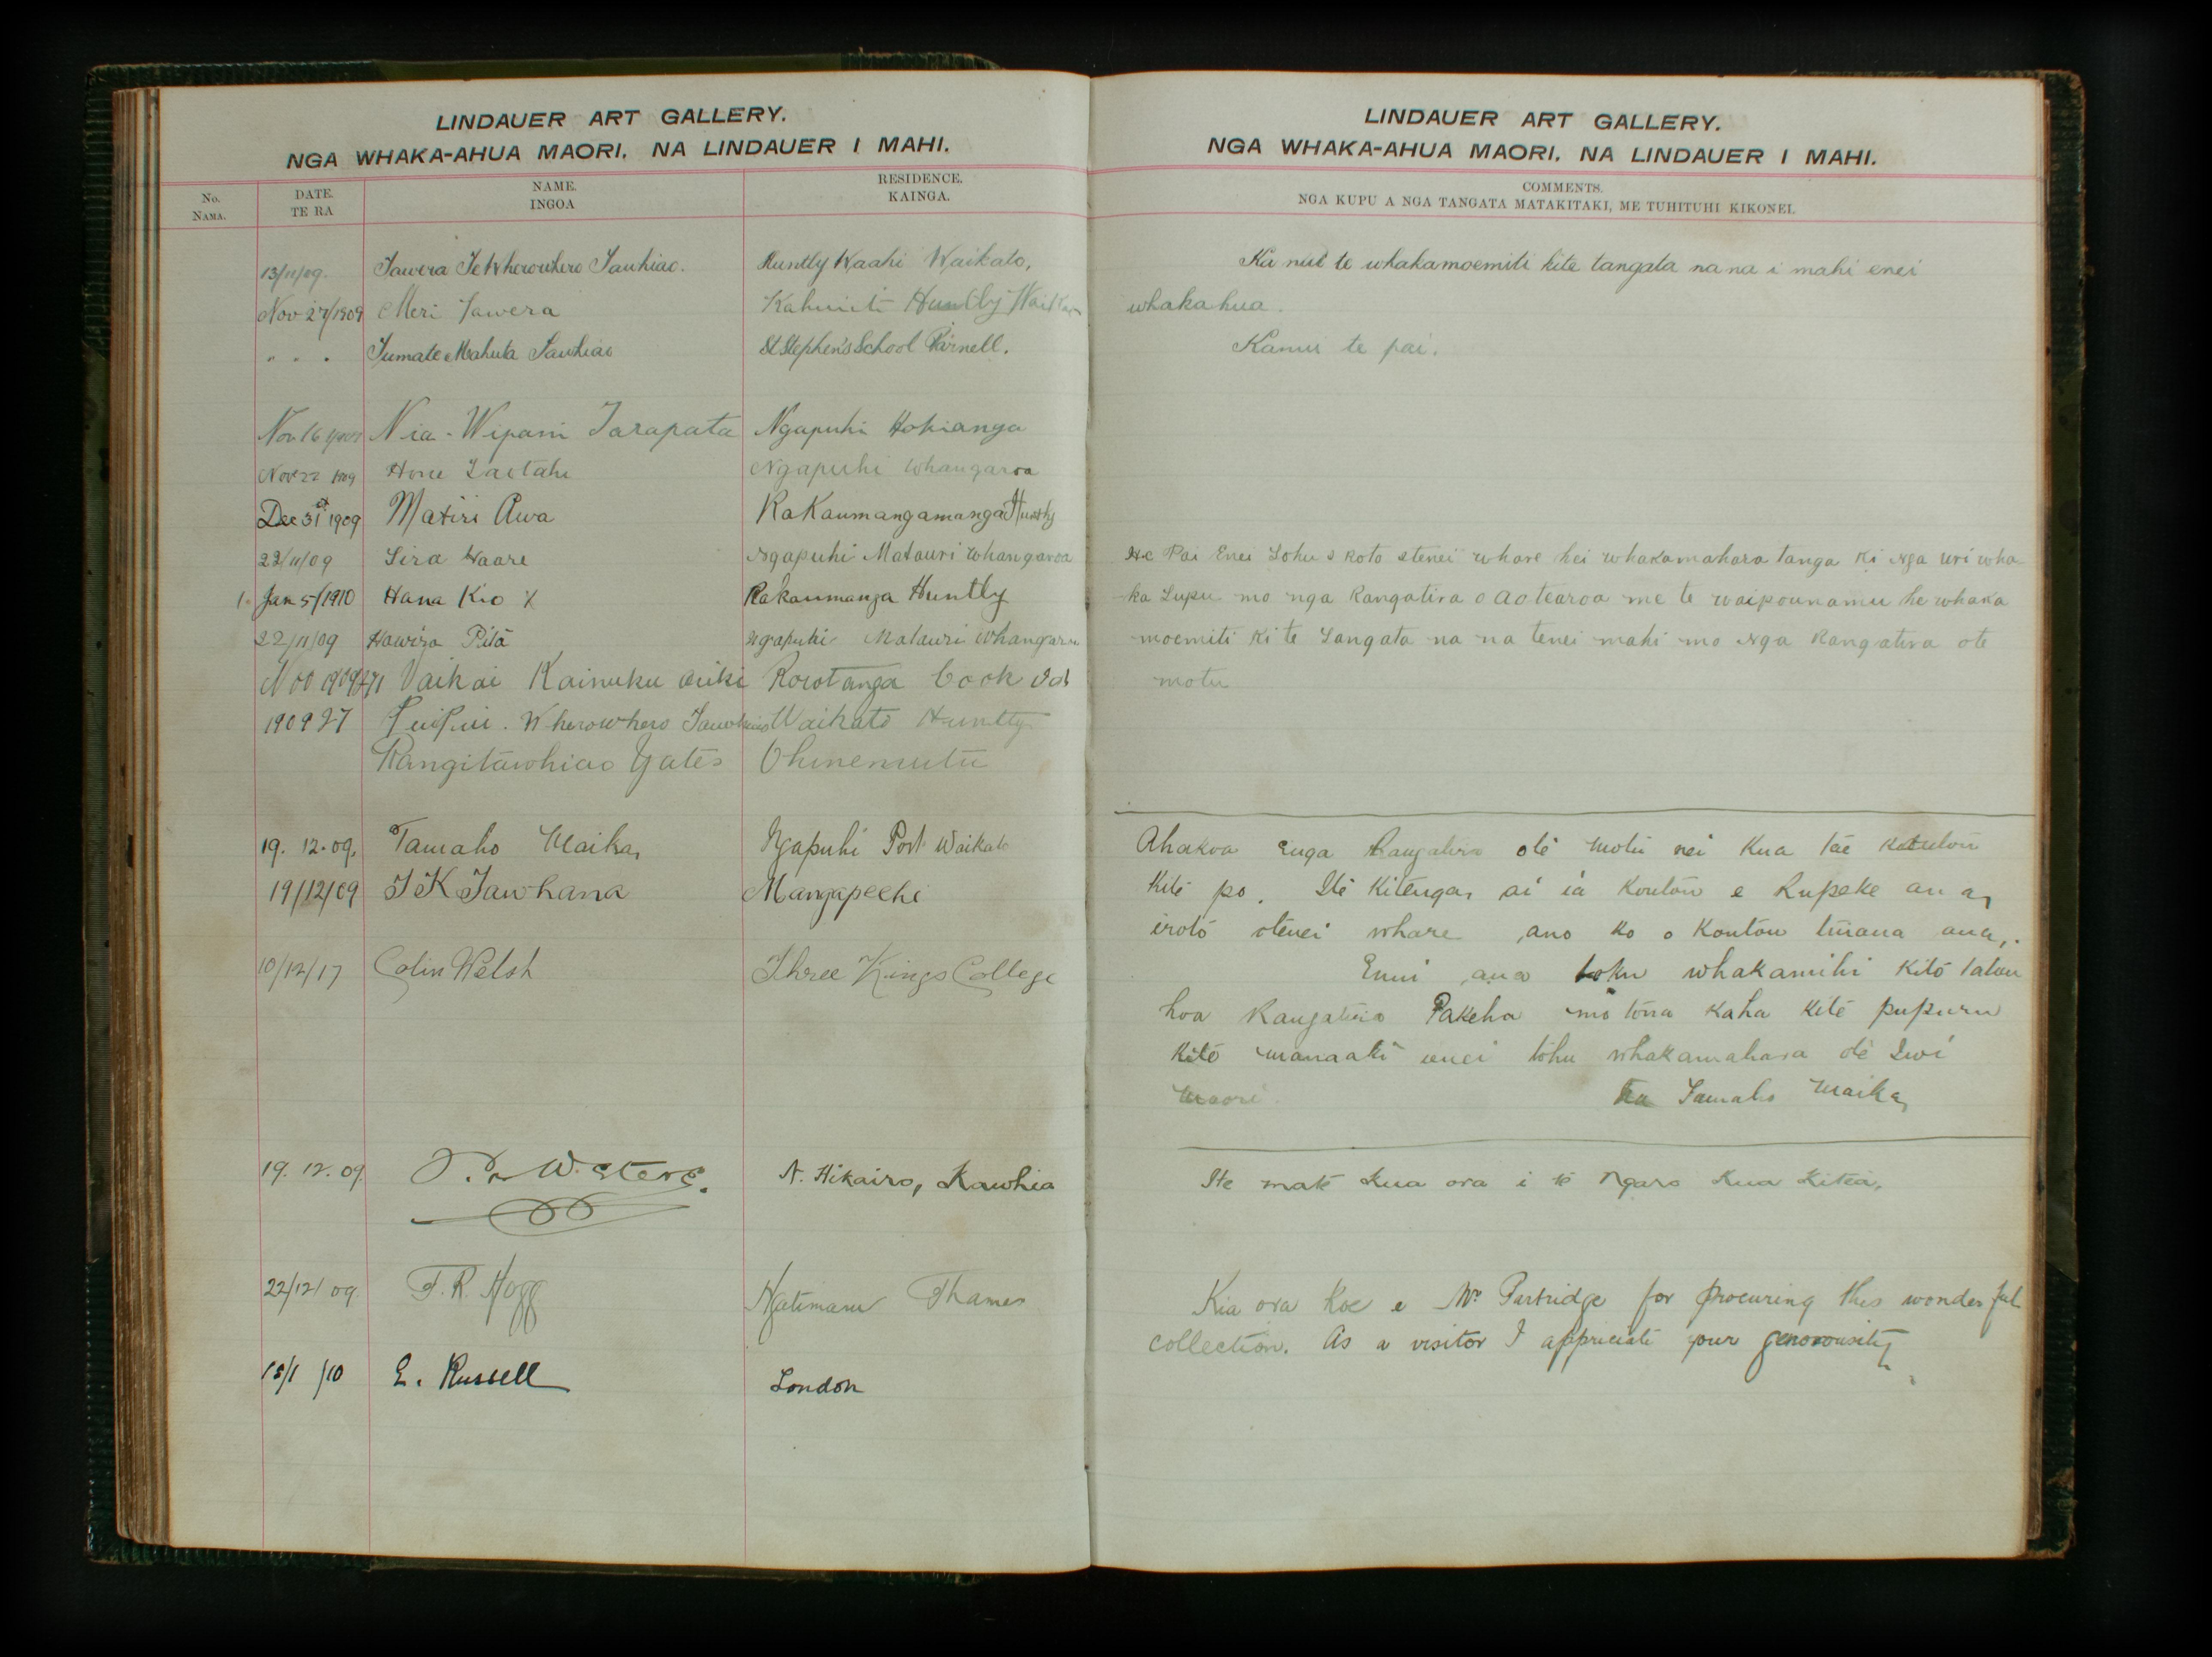 LINDAUER ART GALLERY.
NGA WHAKA-AHUA MAORI, NA LINDAUER I MAHI.
No. NAMA.
DATE. TE RA
NAME. INGOA
RESIDENCE. KAINGA.
13/11/09. Tawera Te Wherowhero Tawhiao. Huntly Waahi Waikato,
Nov 27/1909 Meri Tawera Huntly Waikato
" " " Tumate Mahuta Tawhiao St Stephen's School Parnell.
Nov 16 Nia-Wipani Tarapata Ngapuhi Hokianga
Nov 22 1909 Hone Ngapuhi Whangaroa
Dec 31st 1909 Matiri Awa RaKaumangamanga Huntly
22/11/09 Sira Haare Ngapuhi Matauri Whangaroa
1. Jan 5/1910 Hana Kio X Rakaumanga Huntly
22/11/09 Hawira Pita Ngapuhi Matauri Whangaroa
Nov 1909 Vaikai Kainuku ariki Rorotanga Cook Isl
1909 27 PuiPui. Wherowhero Tawhiao Waikato Huntly
Rangitawhiao Yates Ohinemutu
19. 12. 09. Tamaho Maika, Ngapuhi Port Waikato
19/12/09 T K Tawhana Mangapeehi
10/12/17 Colin Welsh Three Kings College
19. 12. 09. N. Hikairo, Kawhia
22/12/09 F. R. Hogg Ngatimaru Thames
18/1/10 E. Russell London
LINDAUER ART GALLERY.
NGA WHAKA-AHUA MAORI, NA LINDAUER I MAHI.
COMMENTS.
NGA KUPU A NGA TANGATA MATAKITAKI, ME TUHITUHI KIKONEI.
Ka nui te whakamoemiti kite tangata na na i mahi enei
whakahua.
Kanui te pai.
He Pai Enei Tohu o roto otenei whare hei whakamahara tanga ki Nga uri wha
ka Tupu mo nga Rangatira o Aotearoa me te waipounamu he whaka
moemiti ki te Tangata na na tenei mahi mo Nga Rangatira ote
motu
Ahakoa enga Rangatira ote motu nei kua tae koutou
kite po. Ite kitenga, ai ia koutou e Rupeke an a,
iroto otenei whare, ano ko o koutou tinana ana,.
Enui ana toku whakamihi kito tatou
hoa Rangatira Pakeha mo tona kaha kite pupuru
kite manaaki enei tohu whakamahara ote Iwi
Maori. Na Tamaho Maika,
Ite mate kua ora i te Ngaro kua kitea.
Kia ora koe e Mr Partridge for procuring this wonderful
collection. As a visitor I appriciate your generousity